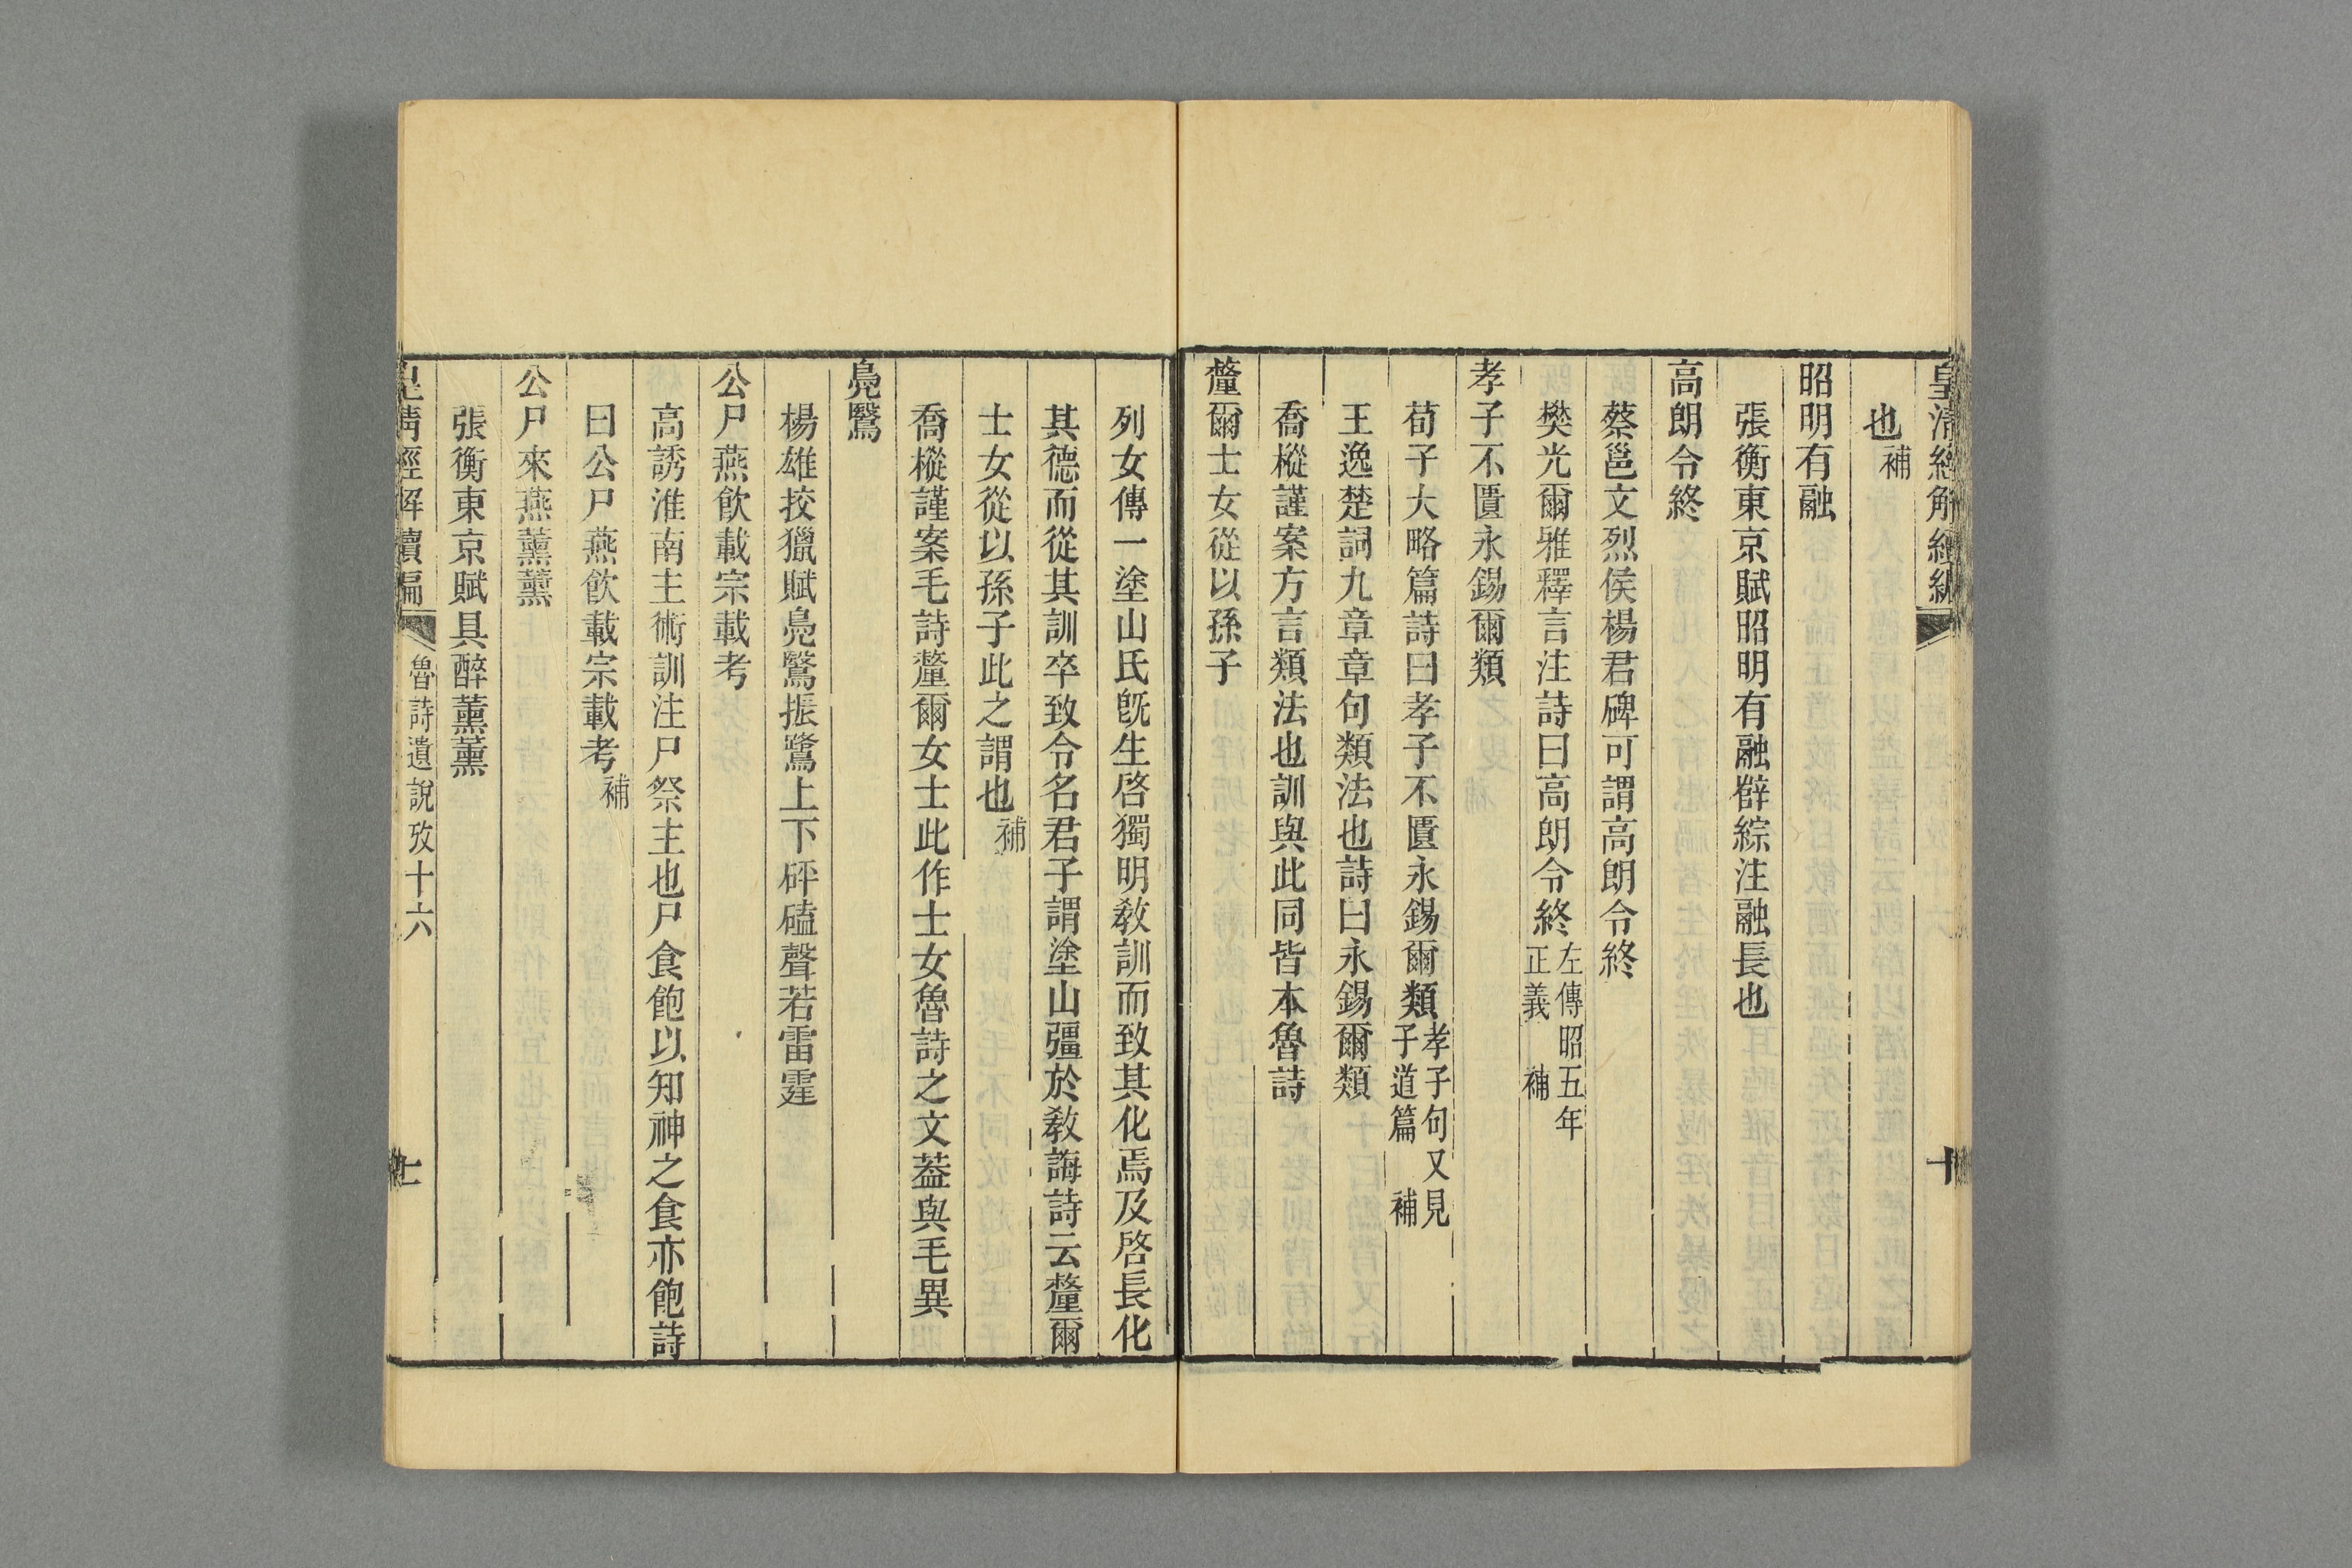 皇清經解續編
十
也補
昭明有融
張衡東京賦昭明有融薛綜注融長也
高朗令終
蔡邕文烈侯楊君碑可謂高朗令終
樊光爾雅釋言注詩曰高朗令終左傳昭五年正義 補
孝子不匱永錫爾類
荀子大略篇詩曰孝子不匱永錫爾類孝子句又見子道篇 補
王逸楚詞九章章句類法也詩曰永錫爾類
喬樅謹案方言類法也訓與此同皆本魯詩
釐爾士女從以孫子
列女傳一塗山氏旣生啓獨明敎訓而致其化焉及啓長化
其德而從其訓卒致令名君子謂塗山彊於敎誨詩云釐爾
士女從以孫子此之謂也補
喬樅謹案毛詩釐爾女士此作士女魯詩之文葢與毛異
鳧鷖
楊雄挍獵賦鳧鷖振鷺上下砰磕聲若雷霆
公尸燕飲載宗載考
高誘淮南主術訓注尸祭主也尸食飽以知神之食亦飽詩
曰公尸燕飲載宗載考補
公尸來燕薰薰
張衡東京賦具醉薰薰
皇清經解續編
魯詩遺說攷十六